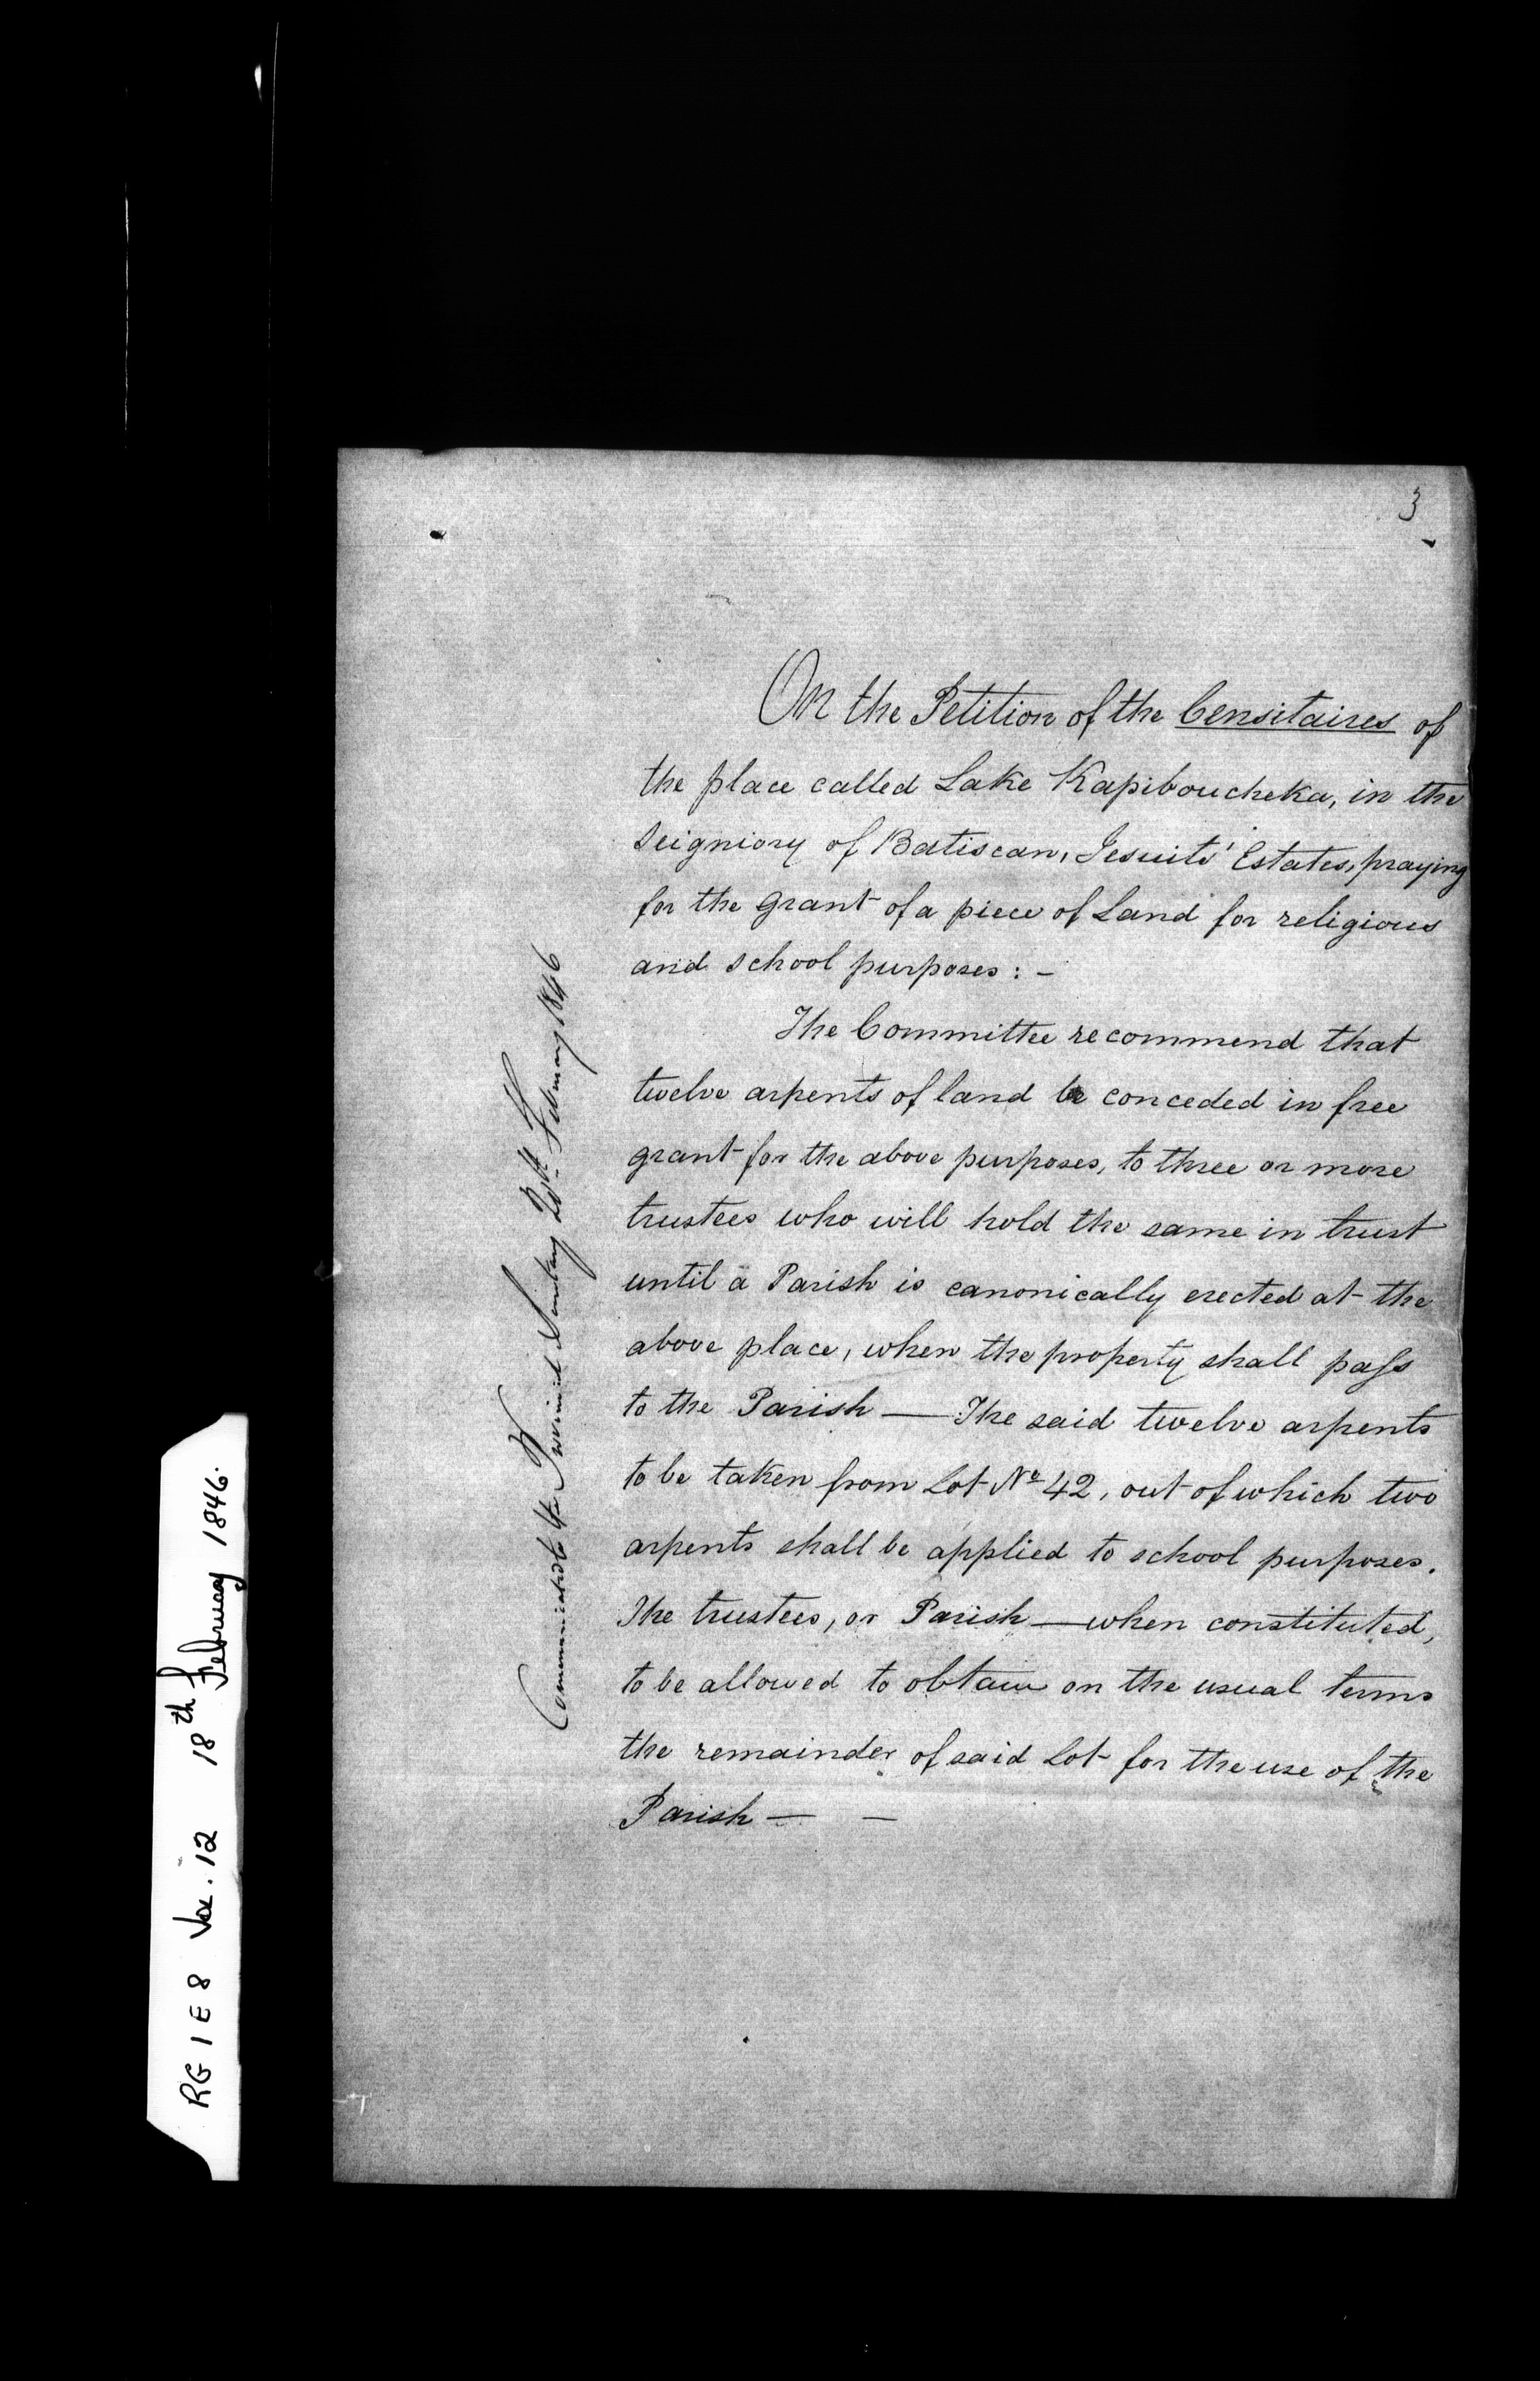 3
On the Petition of the Censitaires of
the place called Lake Kapiboucheka, in the
Seigniory of Batiscan, Jesuits' Estates, praying
for the grant of a piece of Land for religious
and school purposes : -
The Committee recommend that
twelve arpents of land be conceded in free
grant for the above purposes, to three or more
trustees who will hold the same in trust
until a Parish is canonically erected at the
above place, when the property shall pass
to the Parish — The said twelve arpents
to be taken from Lot No 42, out of which two
arpents shall be applied to school purposes.
The trustees, or Parish — when constituted,
to be allowed to obtain on the usual terms
the remainder of said Lot for the use of the
Parish — —
Communicated to Provincial Secretary February 1846
RG 1 E 8 Vol. 12 18th February 1846.